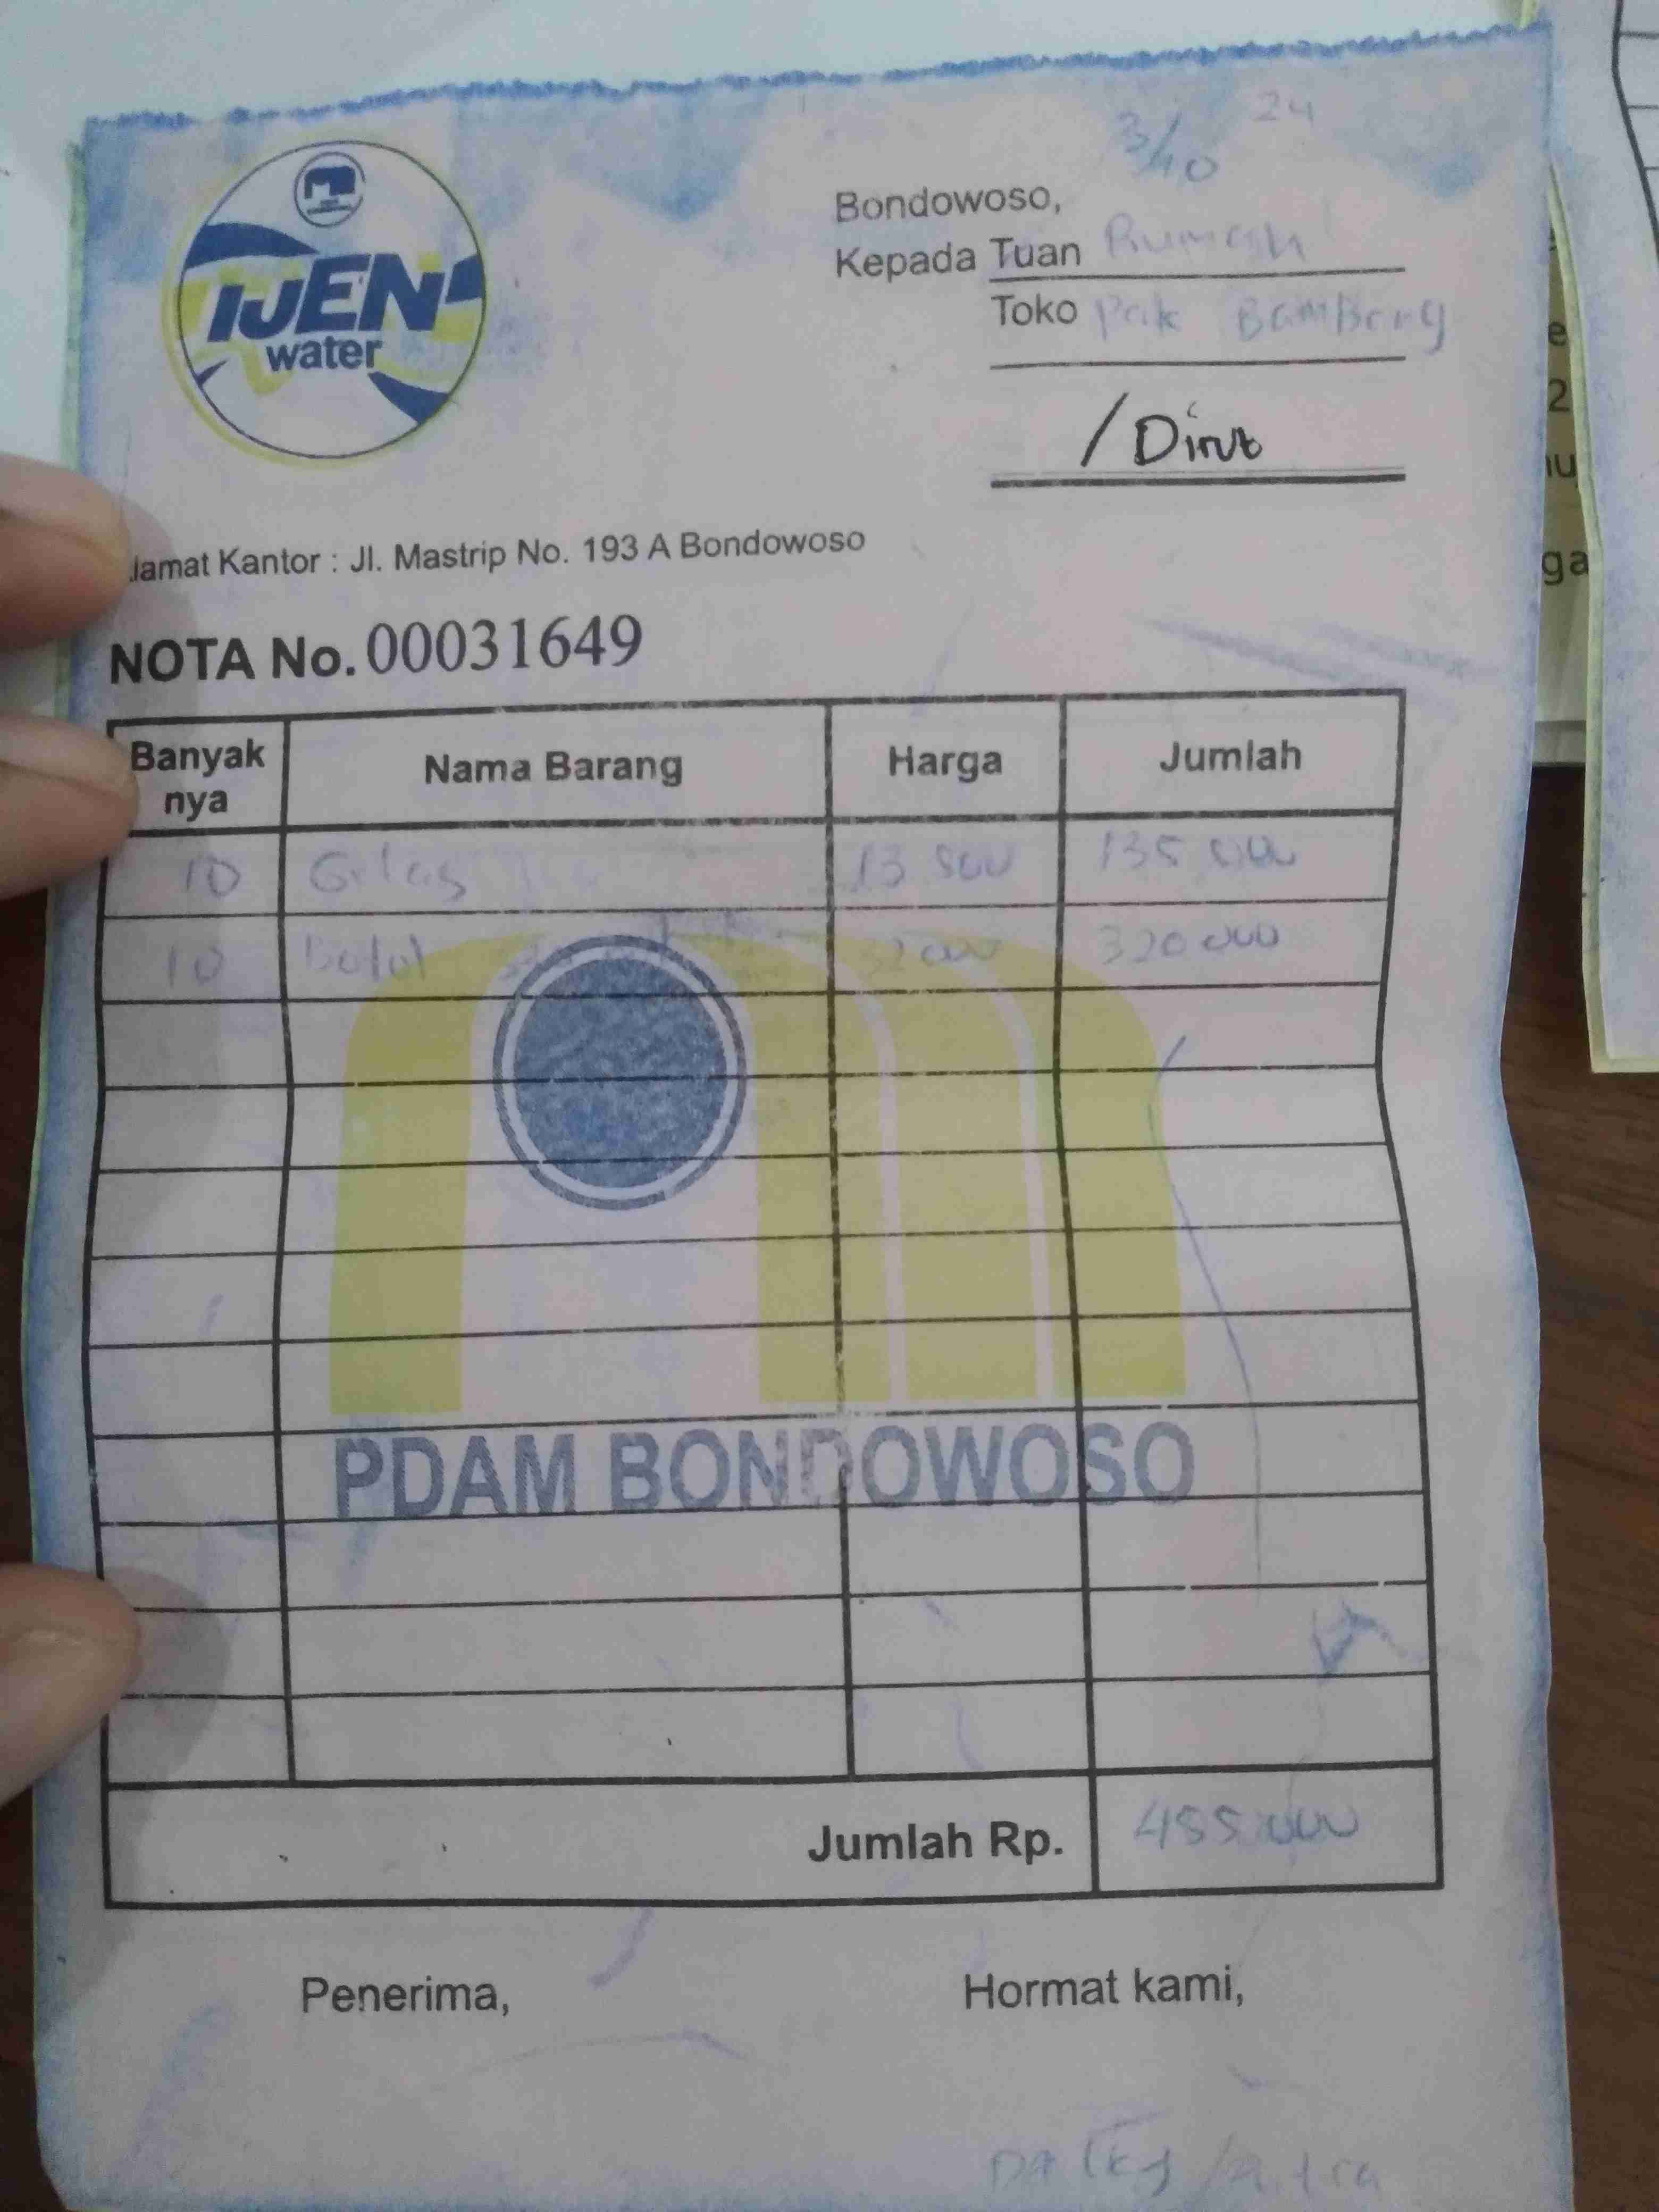 IJEN
water
3/10 24
Bondowoso,
Kepada Tuan Rumah
Toko Pak Bambang
/ Dirut
lamat Kantor : Jl. Mastrip No. 193 A Bondowoso
NOTA No. 00031649
Banyak nya Nama Barang Harga Jumlah
10 Gelas 13 500 135 000
10 Botol 32 000 320 000
PDAM BONDOWOSO
Jumlah Rp. 455.000
Penerima, Hormat kami,